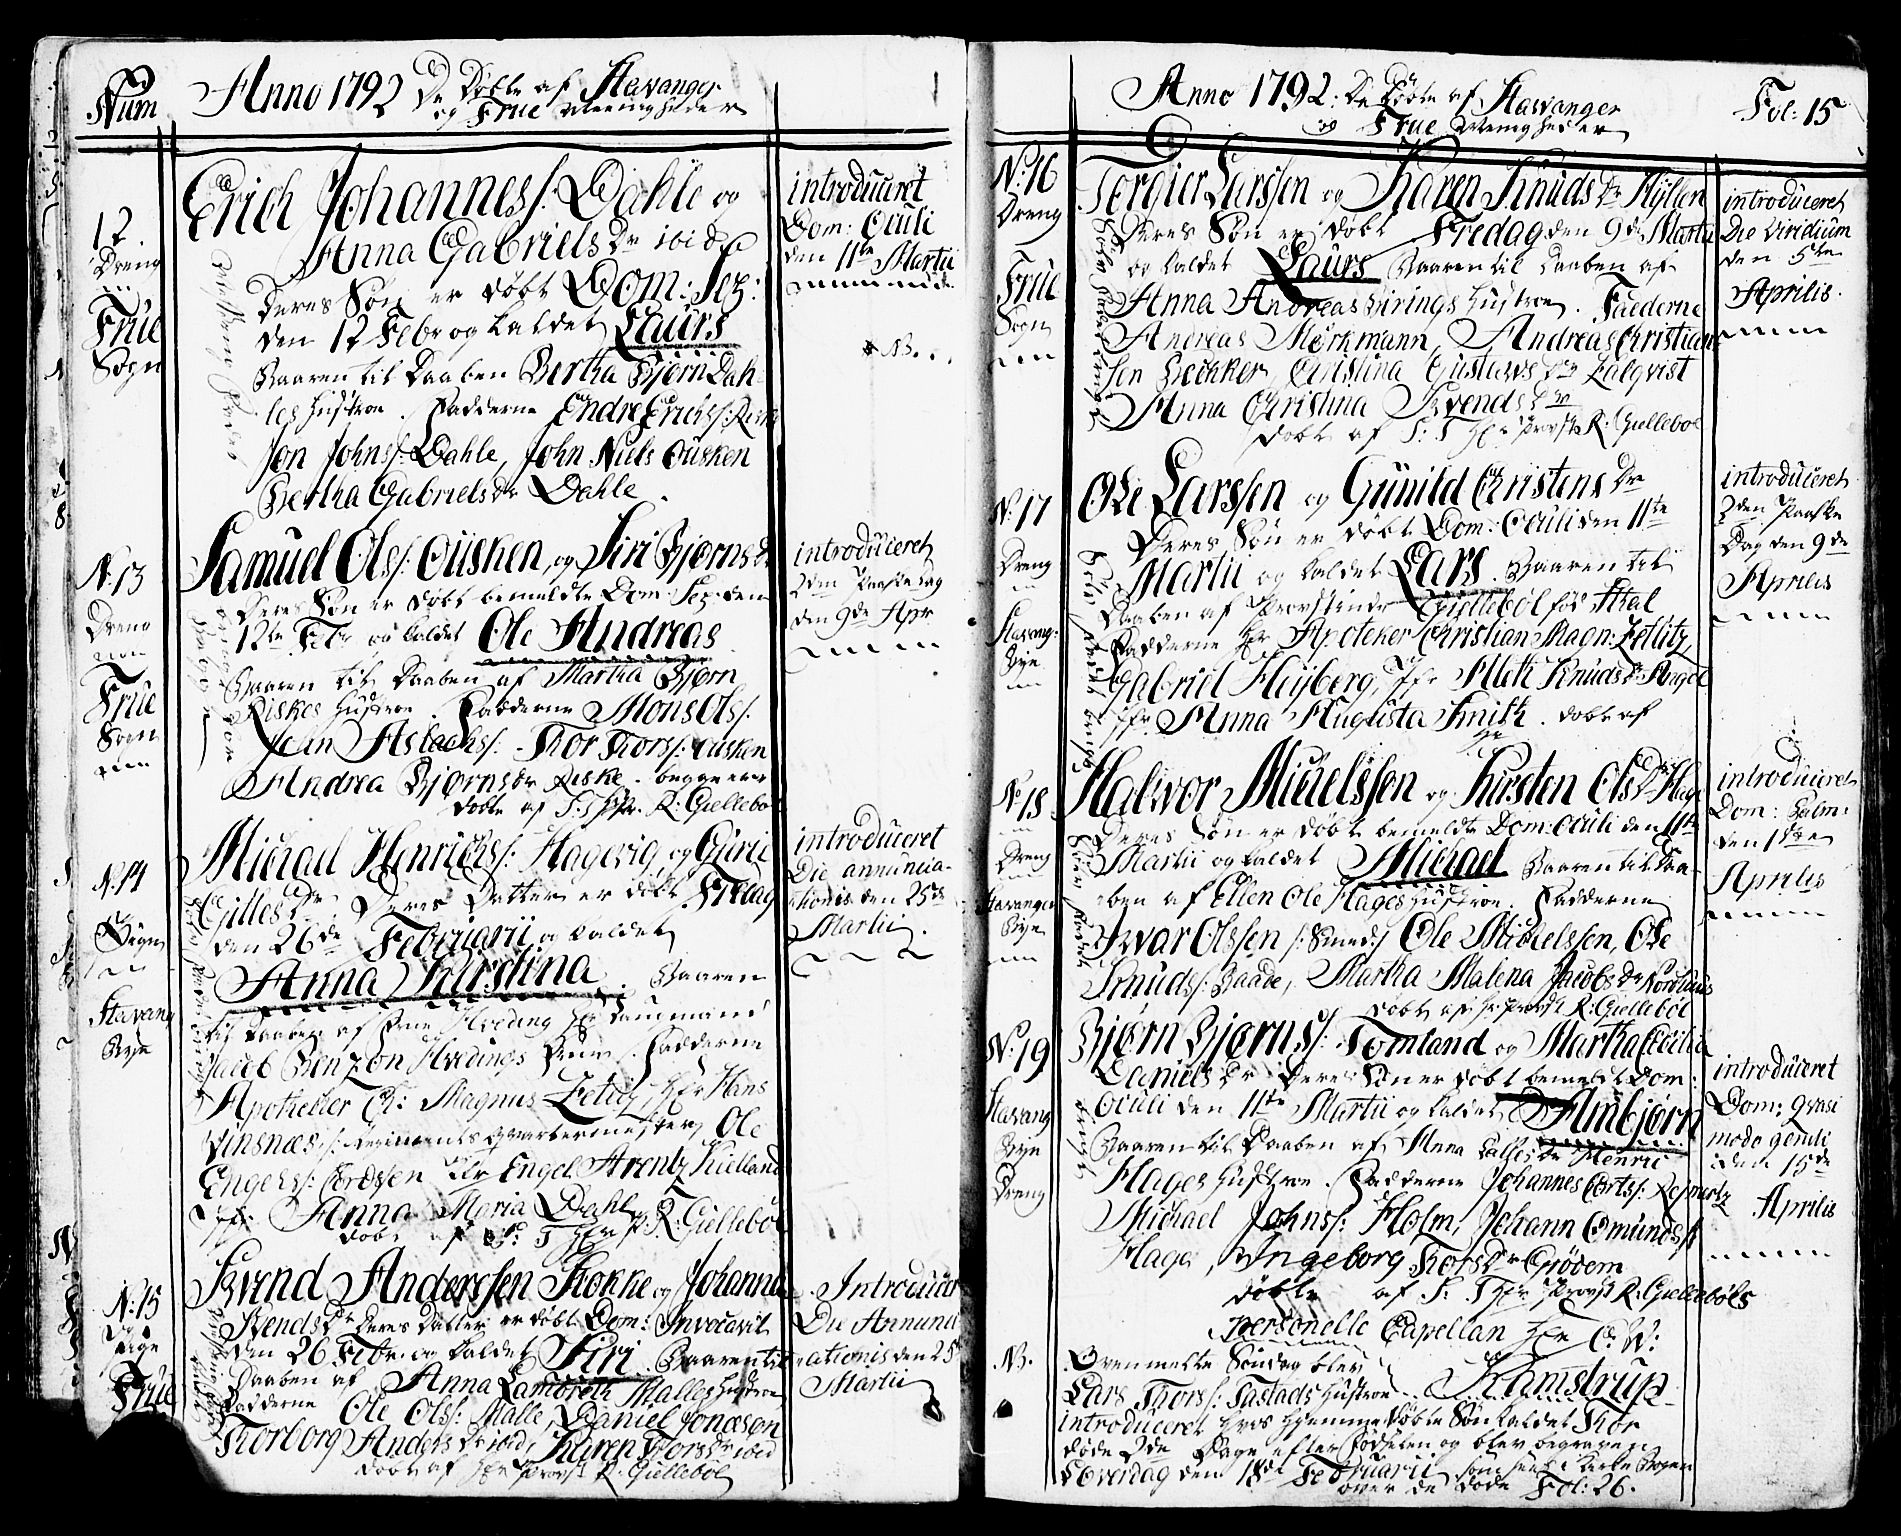 Num
Anno 1792 De Døbte af Stavanger
og Frue Meenigheder
12.
Dreng
Frue
Sogn
Erich Johanness: Dahle og
Anna Gabriels Dr ibid
Deres Søn er døbt Dom: Sex:
den 12 Febr og kaldet Laurs
Baaren til Daaben Bertha Bjørn Dah-
les Hustroe. Fadderne Endre Erichs:
Jon Johns: Dahle, John Niels Ousken
Bertha Gabriels Dr Dahle.
introduceret
Dom: Oculi
den 11te Martii
N:13
Dreng
Frue
Sogn
Samuel Ols: Ousken, og Siri Bjørns Dr
Deres Søn er døbt bemeldte Dom: Sex: den
12te Febr og kaldet Ole Andreas
Baaren til Daaben af Martha Bjørn
Riskes Hustroe. Fadderne Mons Ols:
John Aslachs: Thor Thors: Ousken
Andrea Bjørns Dr Riske. begge ere
døbte af S: T Hr. R: Giellebøl
introduceret
2den Paaske Dag
den 9de Apr
N:14
Pigen
Stavang
Bye
Michael Henrichs: Hagevig og Guri
Gilles Dr Deres Datter er døbt Fredag
den 26de Februarii og kaldet
Anna Kirstina. Baaren
til Daaben af Frue Hveding
Jacob Benzon Hvedings Frue. Fadderne
Apotheker Ch: Magnus Zetlitz, Hr Hans
Vinsnæs, Regiments Qvarteermester Ole
Engels: Engel Arentz Kielland
Jfr: Anna Maria Dahl
døbt af S: T Hr P: R: Giellebøl
introduceret
Die annuncia-
tionis den 25de
Martii.
N:15
Pige
Frue
Svend Anderssen Stokke og Johanna
Svends Dr Deres Datter er døbt Dom: Invocavit
den 26 Febr. og kaldet Siri. Baaren til
Daaben af Anna Lambreth Malles Hustroe
Fadderne Ole Ols: Malle, Daniel Jonæson
Thorborg Anders Dr ibid, Karen Thors Dr ibid
døbt af Hr Provst R: Giellebøl
Introducer
Die Annunci
ationis den 25
Martii
Anno 1792: De Døbte af Stavanger
og Frue Menigheder
Fol: 15
N:16
Dreng
Frue
Sogn
Torgier Larssen og Karen Knuds Dr
Deres Søn er døbt Fredag den 9de Martii
og kaldet Laurs Baaren til Daaben af
Anna Andreas Birings Hustroe. Fadderne
Andreas Mørkmann, Andreas Christian
sen Becker, Christina Gustavs Dr Zalqvist
Anna Christina Svends Dr
døbt af S: T Hr Provst R: Giellebøl
introduceret
Die Viridium
den 5te
Aprilis.
N:17
Dreng
Stavang:
Bye
Ole Larssen og Gunild Christens Dr
Deres Søn er døbt Dom: Oculi den 11te
Martii og kaldet Lars. Baaren til
Daaben af Provstinde Giellebøl fød Stal
Fadderne Hr Apoteker Christian Magn: Zetlitz,
Gabriel Heyberg, Jfr Aleth Knuds Dr
Jfr: Anna Augusta Smith. døbt af
introduceret
2den Paaske
Dag den 9de
Aprilis
N:18
Dreng
Stavanger
Bye
Halvor Michelssen og Kirsten Ols Dr Hage
Deres Søn er døbt bemeldte Dom: Oculi den 11te
Martii og kaldet Michael Baaren til Daa-
ben af Ellen Ole Hages Hustroe. Fadderne
Ivar Olssen /:Smed:/ Ole Michelssen, Ole
Knuds: Baade, Martha Malena Jacobs Dr
døbt af Hr Provst R: Giellebøl
introduceret
Dom: Palm:
den 1ste
Aprilis
N:19
Stavang
Bye
Dreng
Bjørn Bjørns: Tomland og Martha Cecilia
Daniels Dr Deres Søn er døbt bemeldt Dom:
Oculi den 11te Martii og kaldet Ambjørn
Baaren til Daaben af Anna Henric
Hages Hustroe. Fadderne Johannes
Michael Johns: Holm, Johann Omunds:
Hage, Ingeborg Thors Dr Grødem
døbte af S: T Hr Provst R: Giellebøls
personelle Capellan Hr C: W:
Kamstrup.
introduceret
Dom: qvasi
modo geniti
den 15de
Aprilis
N.
Ovenmelte Søndag blev
Lars Thors: Tastads Hustroe
introduceret hvis hjemmedøbte Søn kaldet Thor
døde 2de Dage efter Fødselen og blev begraven
Løverdag den 18de Februarii
over de døde Fol: 26.